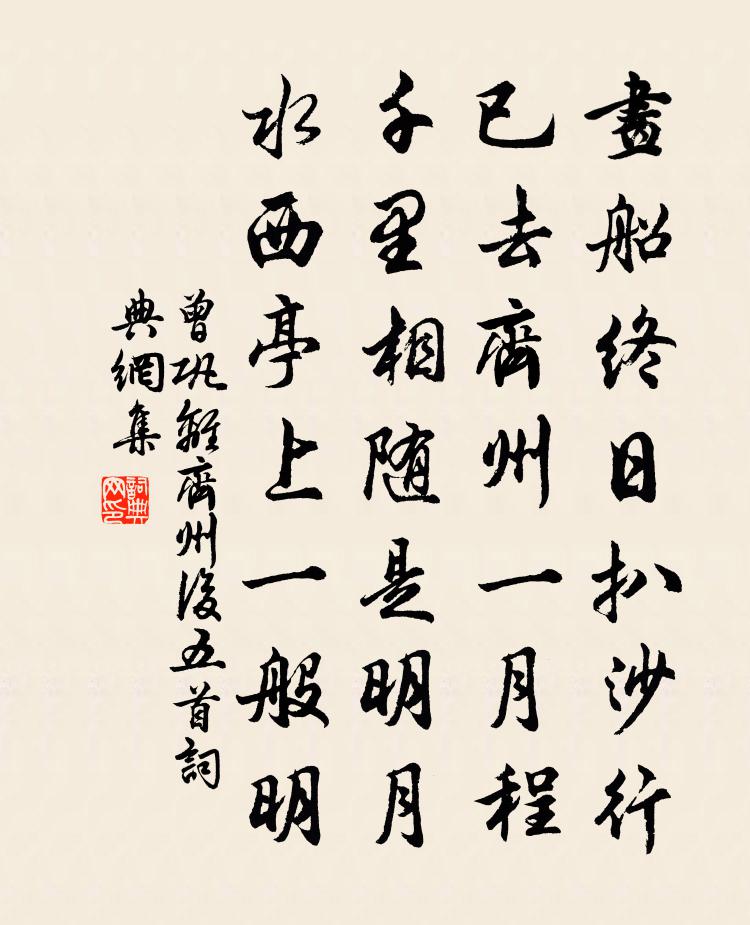 畫船終日扒沙行
已去齊州一月程
千里相随是明月
水西亭上一般明
曾巩離齊州後五首詞
典網集
詞典
网印